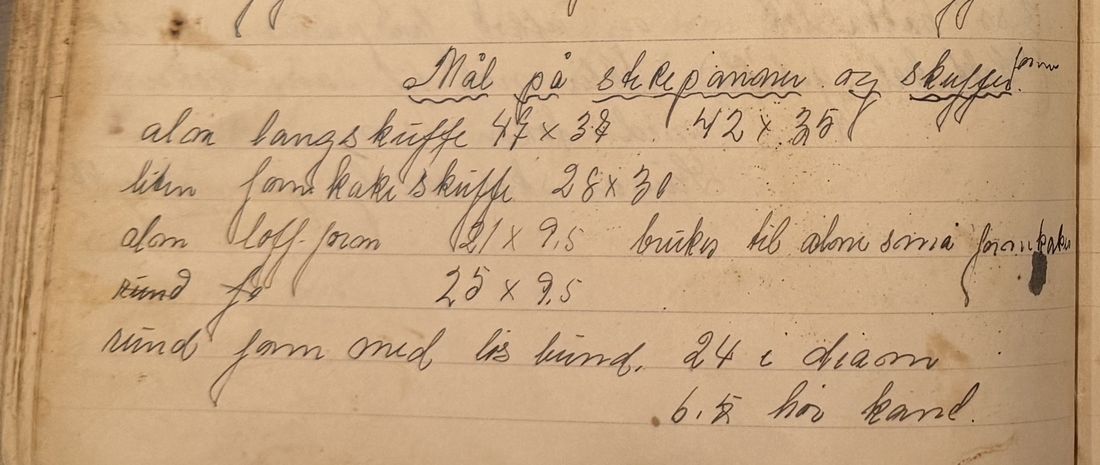 Mål på stekepanner og skuffer form
alm langskuffe 47 x 37 42 x 35
liten formkakeskuffe 28 x 30
alm loff-form 21 x 9,5 brukes til alm små formkaker
rund fo 25 x 9,5
rund form med løs bunn. 24 i diam
6.5 høi kand.